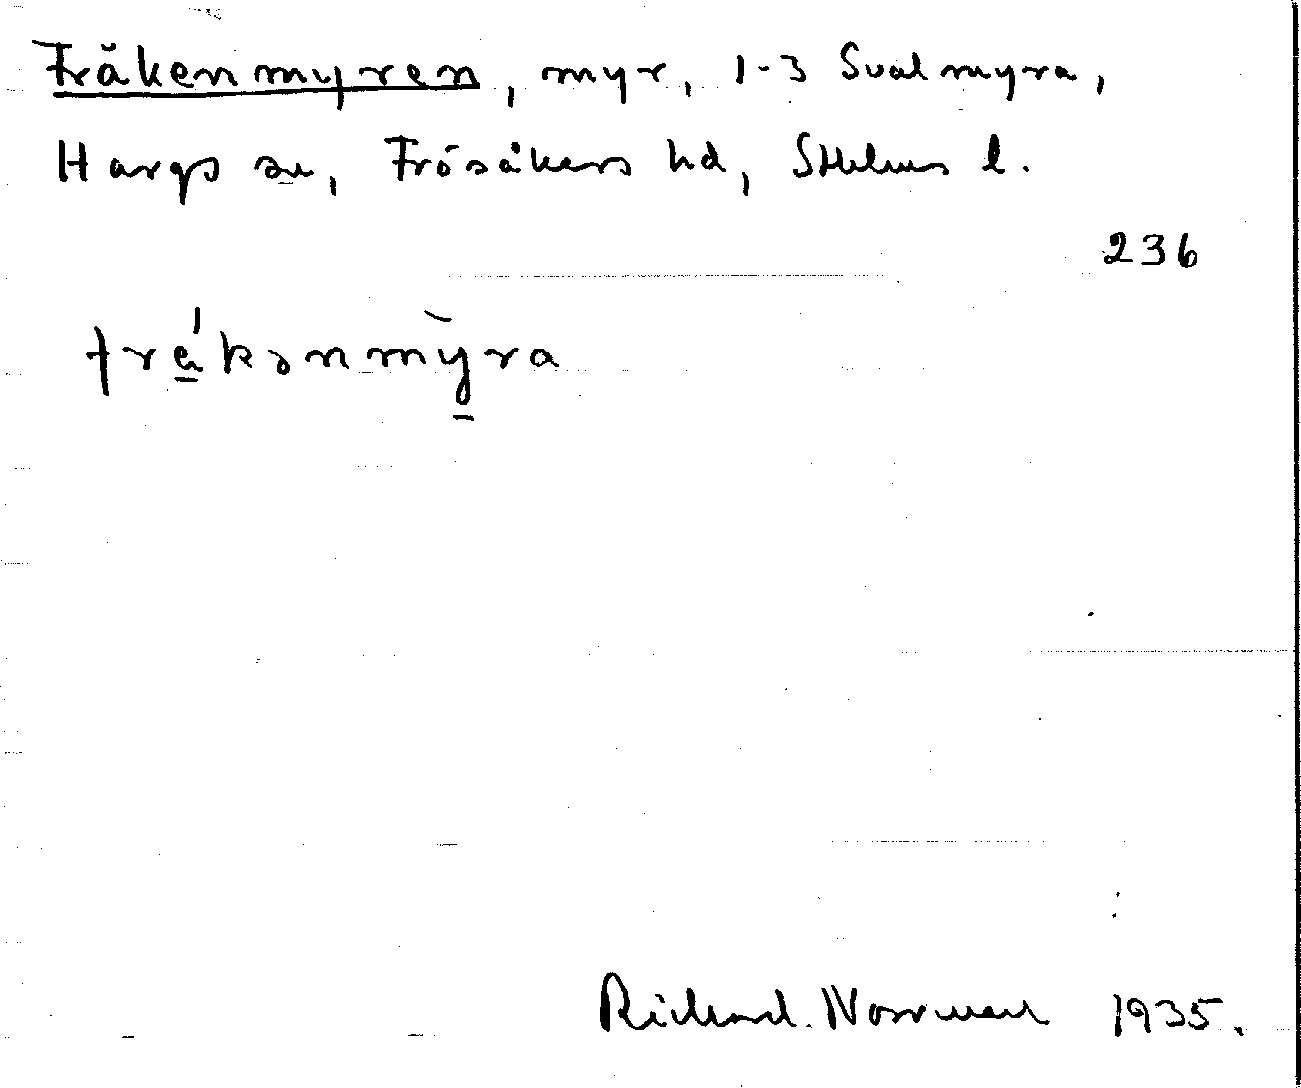 Fräkenmyren, myr, 1-3 Svalmyra,
Hargs sn, Frösåkers hd, Sthlms l.
236
fräkənmyra
Richard Norrman 1935.